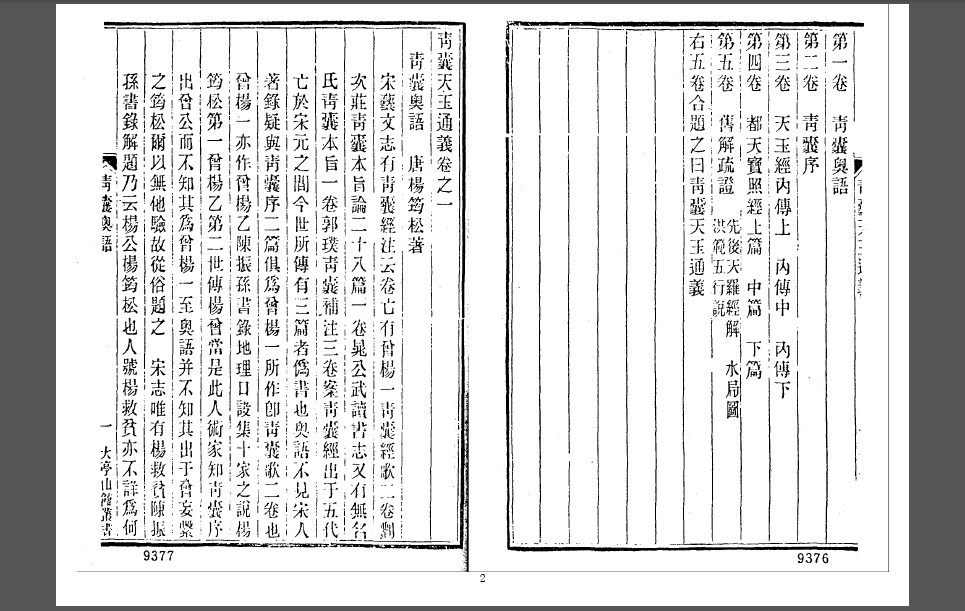 第一卷　靑囊奧語
第二卷　靑囊序
第三卷　天玉經內傳上　內傳中　內傳下
第四卷　都天寶照經上篇　中篇　下篇
第五卷　傳解疏證　先後天羅經解　水局圖
洪範五行說
右五卷合題之曰靑囊天玉通義
9376
靑囊天玉通義卷之一
靑囊奧語　唐楊筠松著
宋藝文志有靑囊經注云卷亡有曾楊一靑囊經歌二卷劉
次莊靑囊本旨論二十八篇一卷晁公武讀書志又有無名
氏靑囊本旨一卷郭璞靑囊補注三卷案靑囊經出于五代
亡於宋元之閒今世所傳有三篇者僞書也奧語不見宋人
著錄疑與靑囊序二篇俱爲曾楊一所作卽靑囊歌二卷也
曾楊一亦作曾楊乙陳振孫書錄地理口訣集十家之說楊
筠松第一曾楊乙第二世傳楊曾當是此人術家知靑囊序
出曾公而不知其爲曾楊一至奧語并不知其出于曾妄繫
之筠松爾以無他驗故從俗題之　宋志唯有楊救貧陳振
孫書錄解題乃云楊公楊筠松也人號楊救貧亦不詳爲何
靑囊奧語
一
大亭山館叢書
9377
2